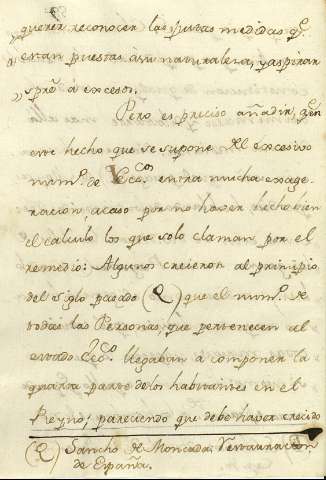 querer reconocer las justas medidas q.e
estan puestas á su naturaleza, y aspiran
spre á excesos.
Pero es preciso añadir, q.e en
este hecho que se supone del excesivo
num.o de Ecc.cos entra mucha exage-
racion acaso por no haver hecho bien
el calculo los que solo claman por el
remedio: Algunos creieron al principio
del siglo pasado (Q) que el num.o de
todas las Personas que pertenecen al
estado Ecc.co llegaban á componer la
quarta parte de los habitantes en el
Reyno, pareciendo que debe haver crecido
(Q) Sancho de Moncada, Restauracion
de España.